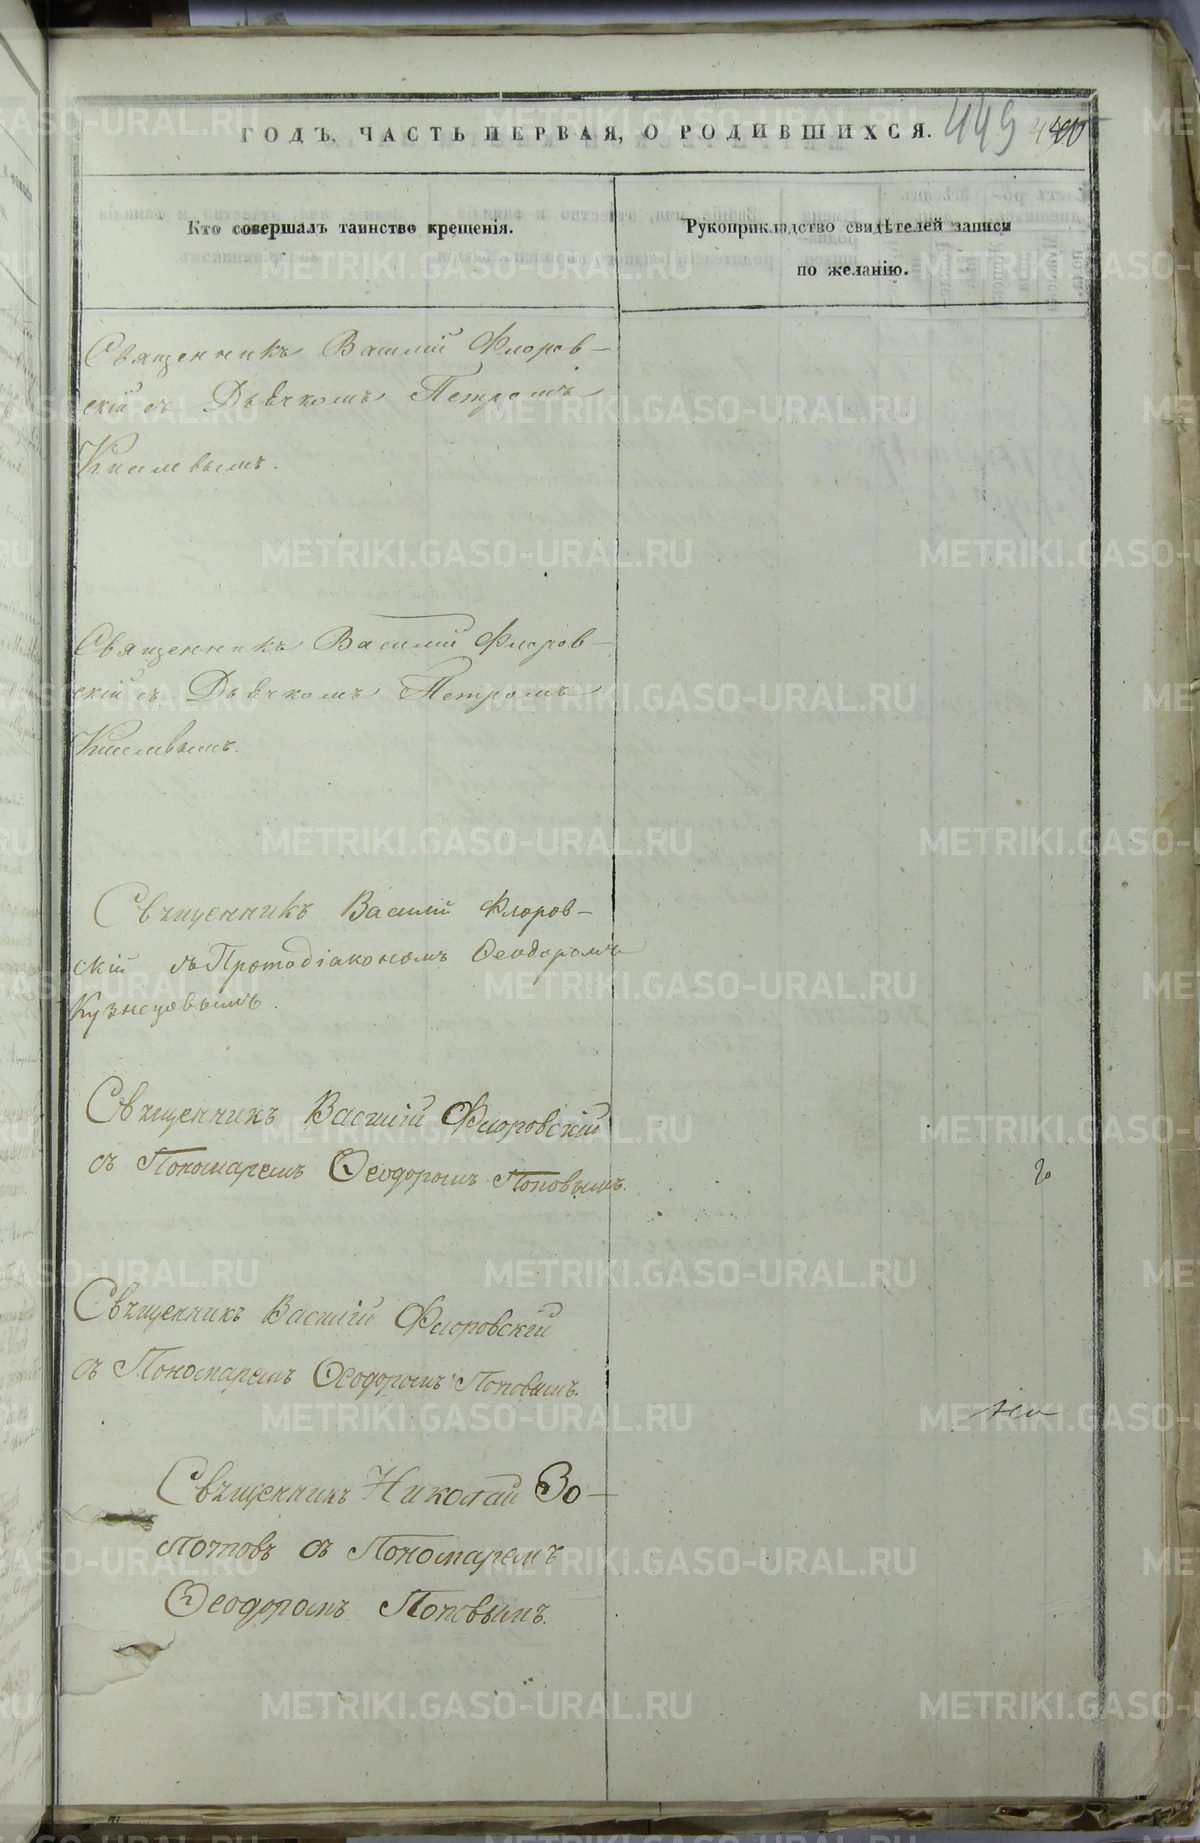 ГОДЪ, ЧАСТЬ ПЕРВАЯ, О РОДИВШИХСЯ. 449
Кто совершалъ таинство крещенія.
Рукоприкладство свидѣтелей записи
по желанію.
Священникъ Василій Флоров-
скій съ Дьячкомъ Петромъ
Священникъ Василій Флоров-
скій съ Дьячкомъ Петромъ
Священникъ Василій Флоров-
скій съ Протодіакономъ Ѳеодоромъ
Кузнецовымъ.
Священникъ Василій Флоровскій
съ Пономаремъ Ѳеодоромъ Поповымъ.
Священникъ Василій Флоровскій
съ Пономаремъ Ѳеодоромъ Поповымъ.
Священникъ Николай Зо-
лотовъ съ Пономаремъ
Ѳеодоромъ Поповымъ.
METRIKI.GASO-URAL.RU